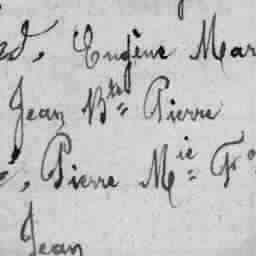 ed, Eugène Mar
Jean Bte= Pierre
é, Pierre Mie= Fo
Jean